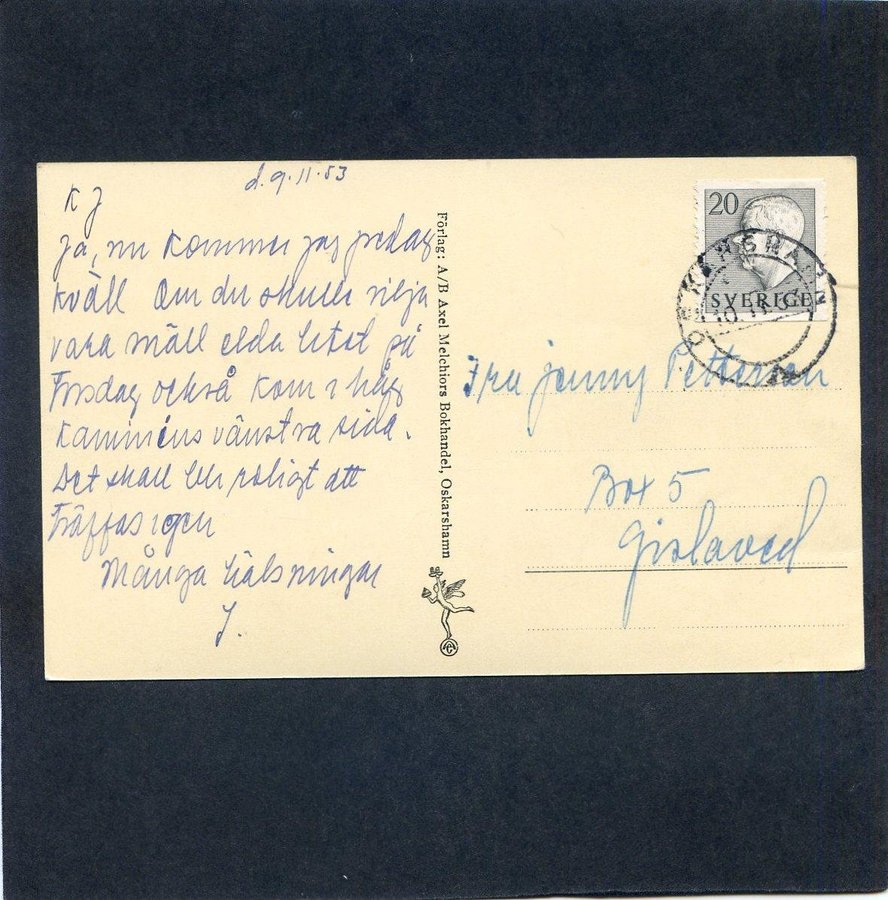 d. 9.11.53
K J
Ja, nu kommer jag fredag
kväll Om du skulle vilja
vara snäll elda litet på
Torsdag också kom i håg
kaminens vänstra sida.
Det skall bli roligt att
träffas igen
Många hälsningar
J.
Förlag: A/B Axel Melchiors Bokhandel, Oskarshamn
20
SVERIGE
OSKARSHAMN
10.11.53
Fru Jenny Petterson
Box 5
Gislaved